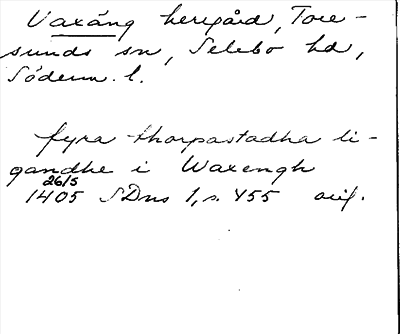 Vaxäng herrgård, Tore-
sunds sn, Selebo hd,
Söderm. l.
fyra thorpastadha li-
gandhe i Waxengh
26/5
1405 SDns 1, s. 455 avf.